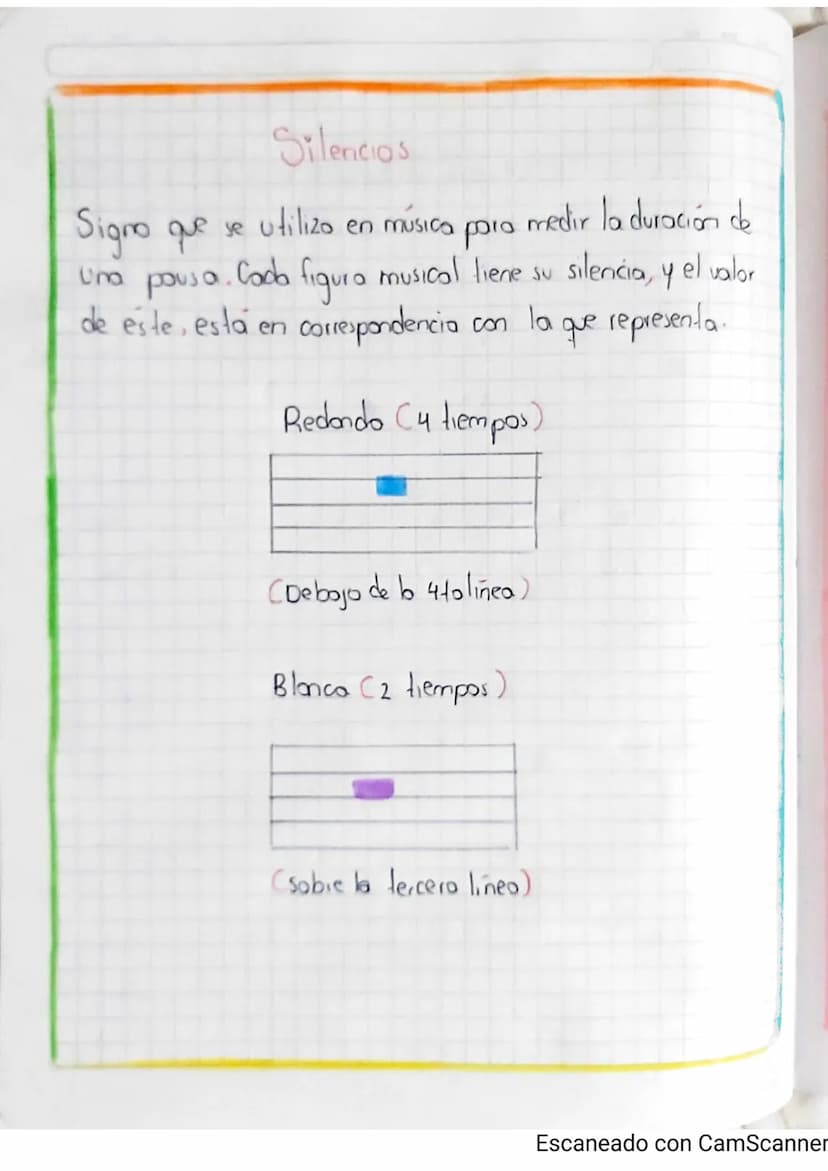 Silencios
Signo que se utiliza en música para medir la duración de
una pausa. Cada figura musical tiene su silencia, y el valor
de éste, está en correspondencia con la que representa.
Redonda (4 tiempos)
(Debajo de la 4ta línea)
Blanca (2 tiempos)
(sobre la tercera línea)
Escaneado con CamScanner